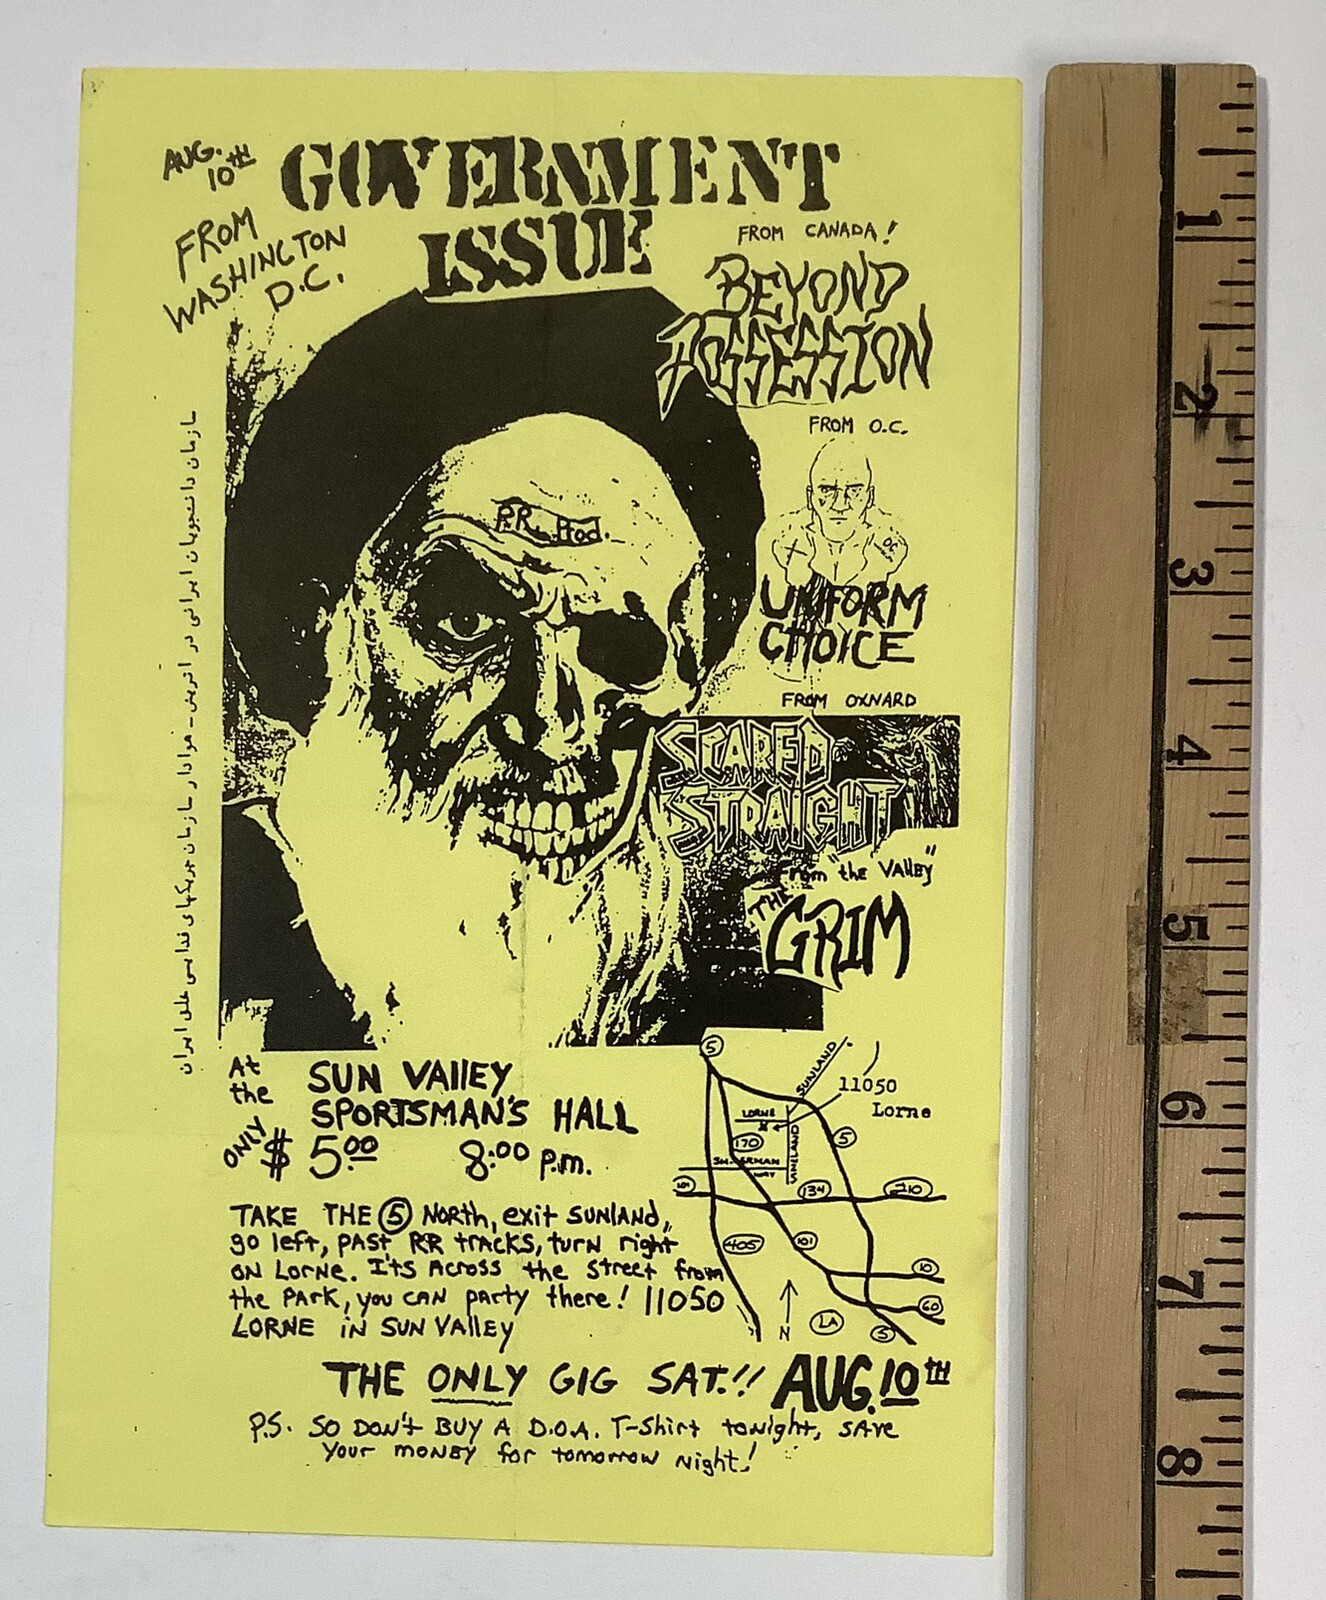 AUG. 10TH
GOVERNMENT
ISSUE
FROM
WASHINGTON
D.C.
FROM CANADA!
BEYOND
POSSESSION
FROM O.C.
OC
UNIFORM
CHOICE
P.R. Prod.
FROM OXNARD
SCARED
STRAIGHT
From "the VAlley"
THE GRIM
سازمان دانشجویان ایرانی در اتریش - هوادار سازمان چریکهای فدایی خلق ایران
At
the
SUN VAlleY
SPORTSMAN'S HALL
ONLY $ 5.00 8:00 p.m.
TAKE THE 5 NORTH, exit SUNlAND,
go left, PAST RR trACKS, turn right
ON LORNE. It's Across the Street from
the PARK, you CAN party there! 11050
LORNE iN SUN VAlley
5
SUNLAND
11050
Lorne
LORNE
X
170
SUNLAND
5
SHERMAN
WAY
101
134
210
405
101
10
60
N
LA
5
THE ONLY GIG SAT.!! AUG. 10TH
P.S. SO DON'T BUY A D.O.A. T-Shirt tonight, SAve
Your MONEY for tomorrow Night!
1
2
3
4
5
6
7
8